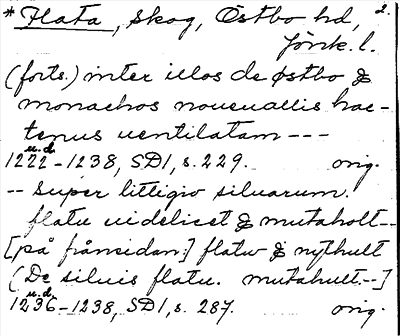 * Flata, skog, Östbo hd, 2.
Jönk. l.
(forts.) inter illos de østbo &
monachos noueuallis hac-
tenus uentilatam ---
u.d.
1222-1238, SD1, s. 229. orig.
-- super littigio siluarum.
flatu uidelicet & mutaholt--
[på frånsidan:] flatu & nythult
(De siluis flatu. mutahult.--]
u.d.
1236-1238, SD1, s. 287. orig.